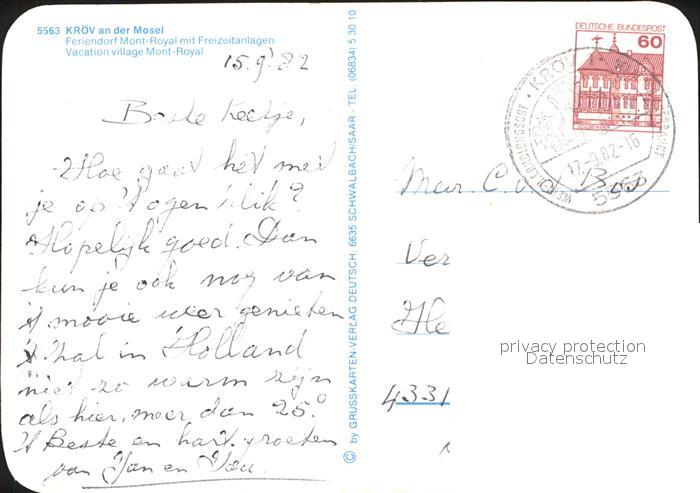 5563 KRÖV an der Mosel
Feriendorf Mont-Royal mit Freizeitanlagen
Vacation village Mont-Royal
15.9.82
Beste Keetje,
Hoe gaat het met
je op 't ogenblik?
Hopelijk goed. Dan
kun je ook nog van
't mooie weer genieten
't Zal in Holland
niet zo warm zijn
als hier, meer dan 25°
't Beste en hart. groeten
van Jan en
© by GRUSSKARTEN-VERLAG DEUTSCH, 6635 SCHWALBACH/SAAR · TEL. (06834) 5 30 10
DEUTSCHE BUNDESPOST
60
KRÖV
17.-9.82-16
5563
Mevr. C. Bos
Ver
He
4331
privacy protection
Datenschutz